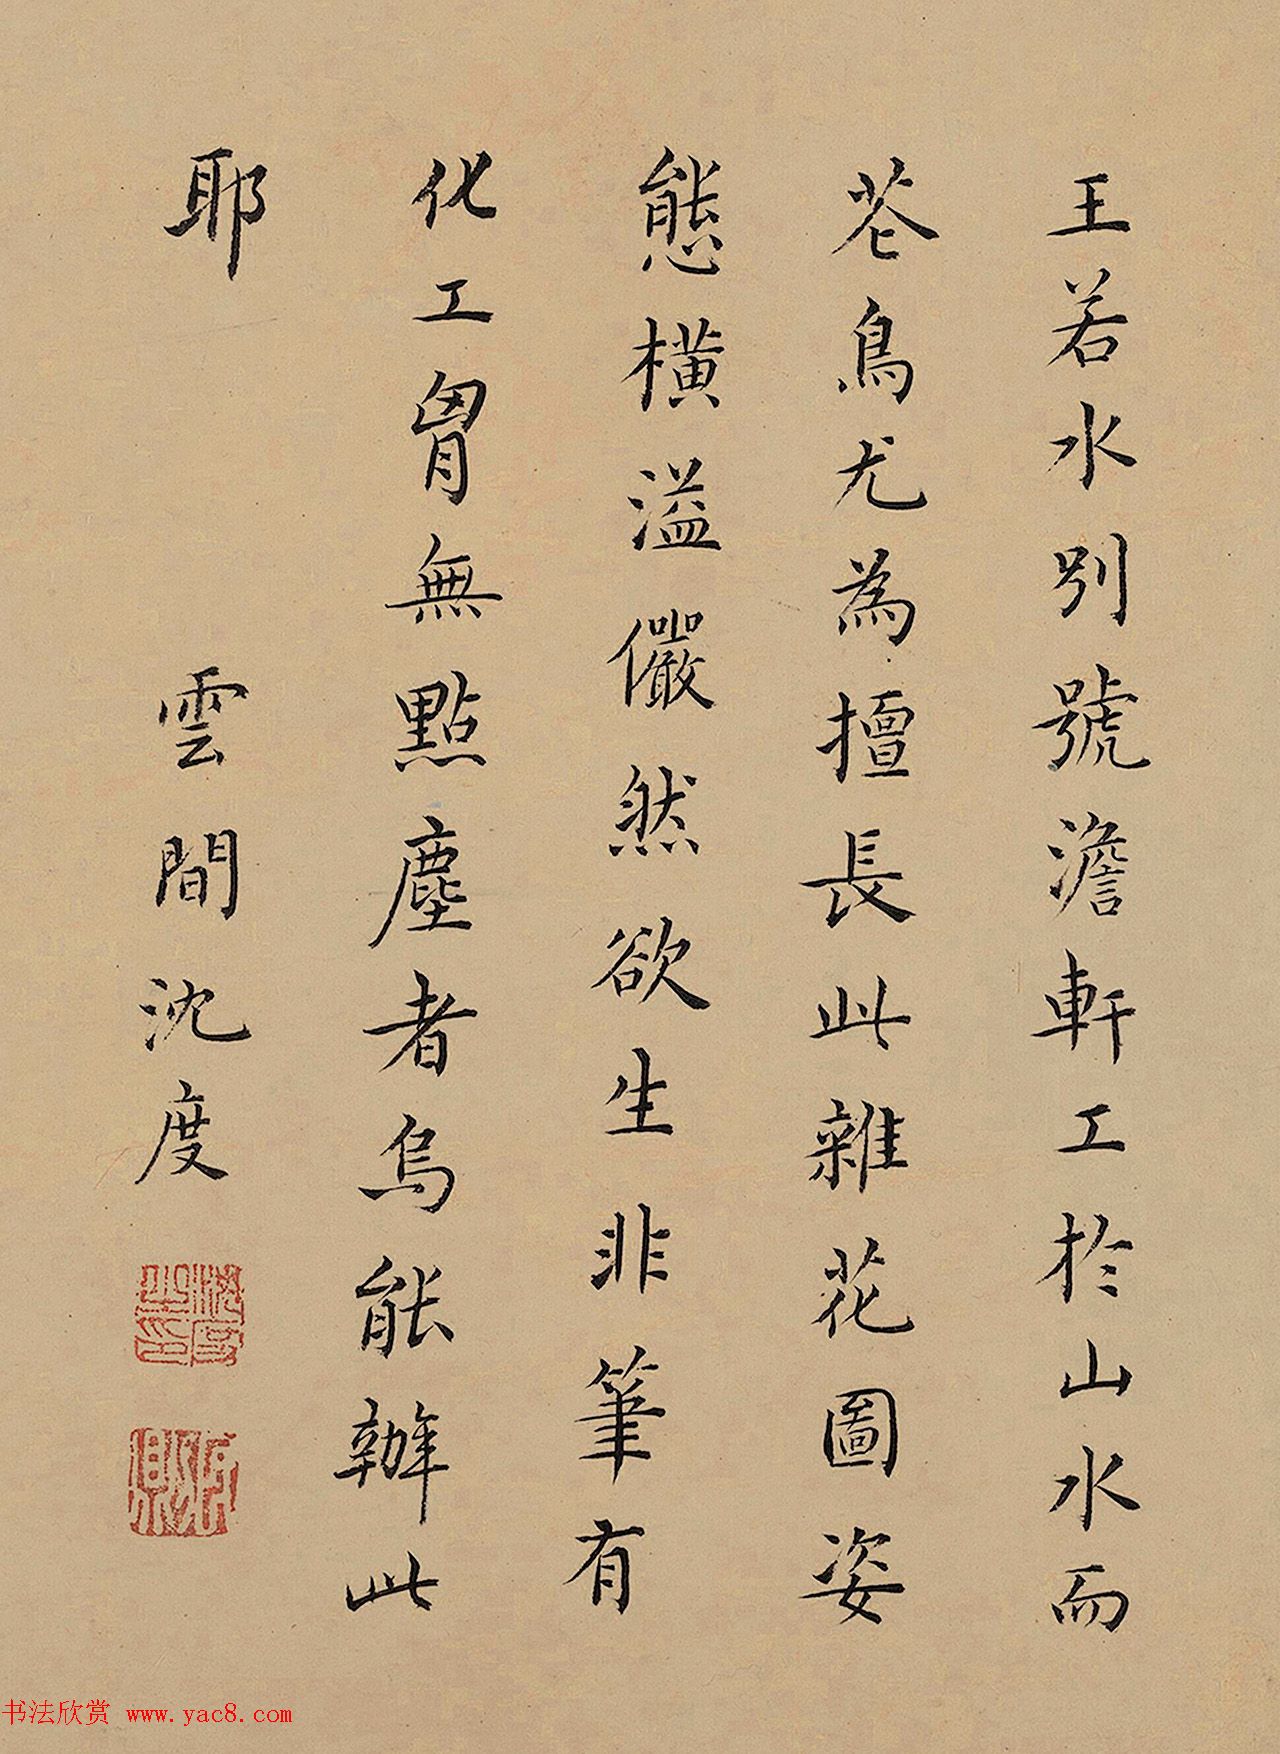 王若水別號澹軒工於山水而
花鳥尤為擅長此雜花圖姿
態橫溢儼然欲生非筆有
化工胷無點塵者烏能辦此
耶
雲間沈度
书法欣赏 www.yac8.com